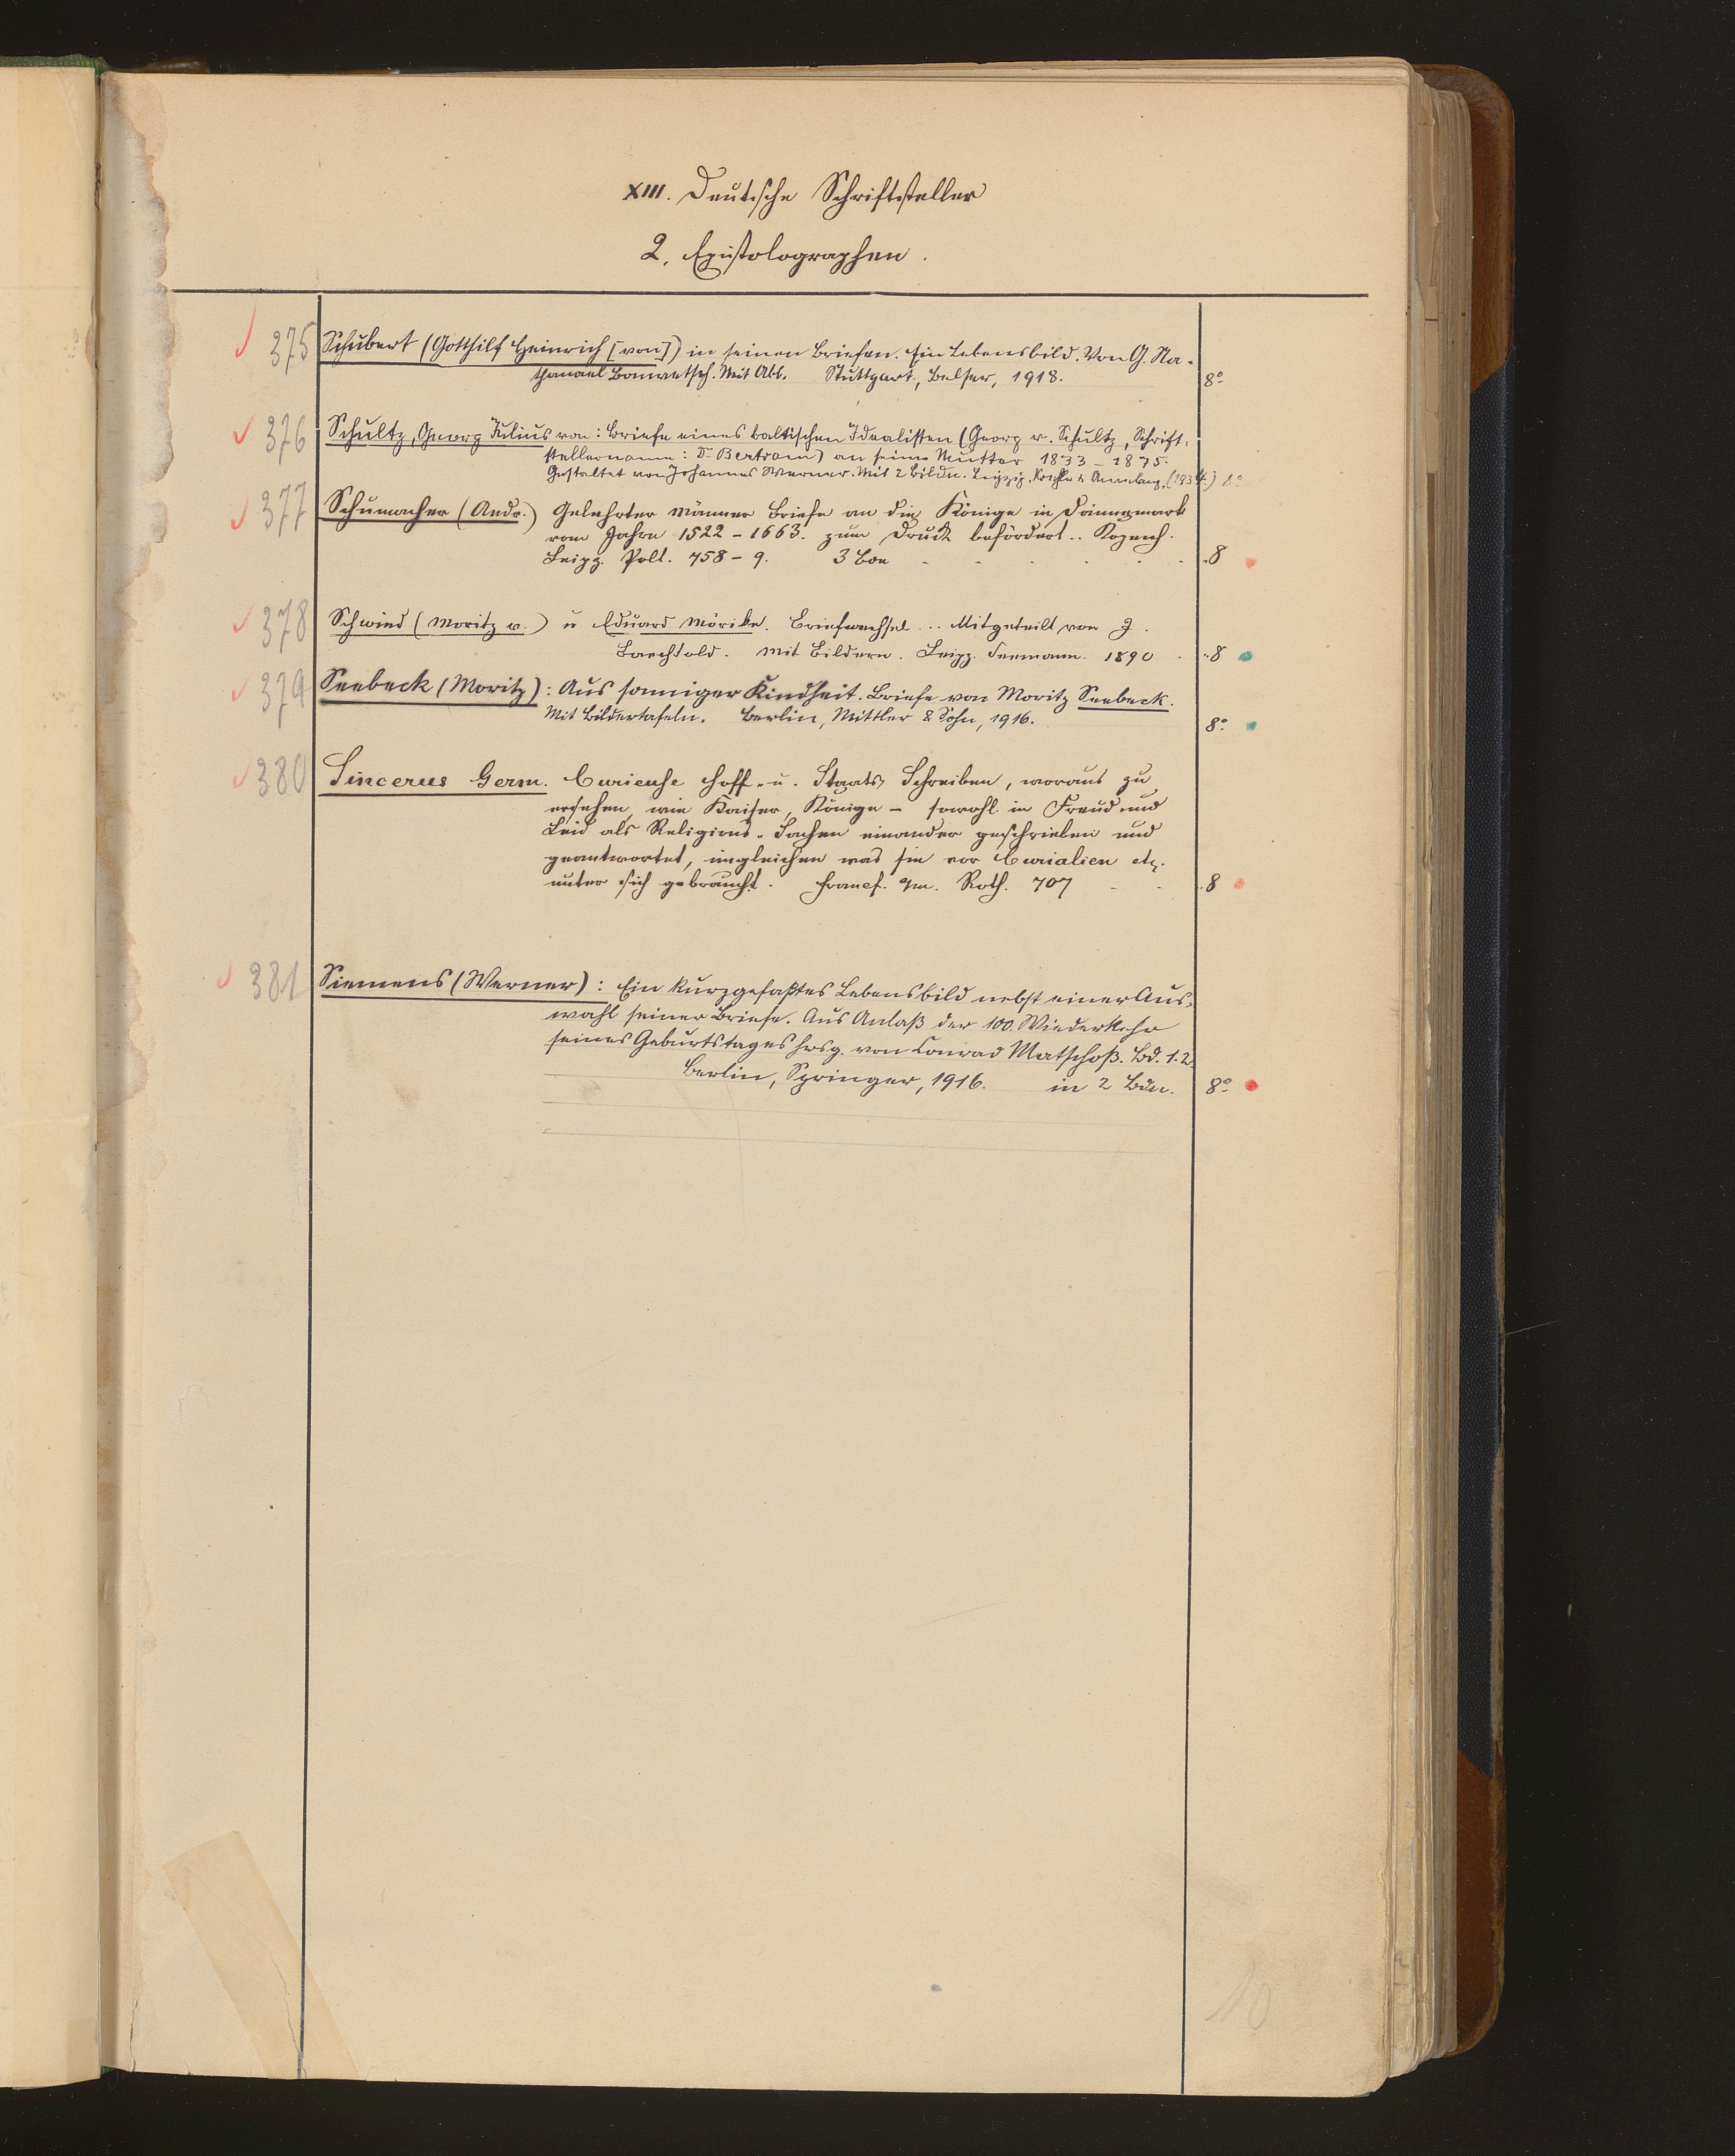 XIII. Deutsche Schriftsteller
2. Epistolographen.
375 Schubert (Gotthilf Heinrich [von]) in seinen Briefen. Ein Lebensbild. Von G. Na-
thanael Bonwetsch. Mit Abb. Stuttgart, Belser, 1918. 8°
376 Schultz, Georg Julius von: Briefe eines baltischen Idealisten (Georg v. Schultz, Schrift-
stellername: Dr Bertram) an seine Mutter 1833-1875.
Gestaltet von Johannes Werner. Mit 2 Bildn. Leipzig, Koehler & Amelang, (1934.) 8°
377 Schumacher (Andr.) Gelehrter Männer Briefe an die Könige in Dännemark
vom Jahre 1522-1663. zum Druck befördert.. Kopenh.
Leipz. Pelt. 758-9. 3 Bde 8
378 Schwind (Moritz v.) u Eduard Mörike. Briefwechsel ... Mitgeteilt von J.
Baechtold. Mit Bildern. Leipz. Seemann. 1890 8
379 Seebeck (Moritz): Aus sonniger Kindheit. Briefe von Moritz Seebeck.
Mit Bildertafeln. Berlin, Mittler & Sohn, 1916. 8°
380 Sincerus Germ. Curieuse Hoff- u. Staats Schreiben, woraus zu
ersehen, wie Kaiser, Könige - sowohl in Freud und
Leid als Religions-Sachen einander geschrieben und
geantwortet, ingleichen was sie vor Curialien etc.
unter sich gebraucht. Francf. a/m. Roth. 707 8
381 Siemens (Werner): Ein kurzgefaßtes Lebensbild nebst einer Aus-
wahl seiner Briefe. Aus Anlaß der 100. Wiederkehr
seines Geburtstages hrsg. von Conrad Matschoß. Bd. 1.2.
Berlin, Springer, 1916. in 2 Bdn. 8°
10